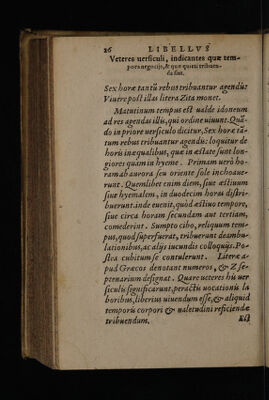 26 LIBELLVS
Veteres uersiculi, indicantes quæ tem-
pora negocijs, & quæ quieti tribuen-
da sint.
Sex horæ tantũ rebus tribuantur agendis:
Viuere post illas litera Zita monet.
Matutinum tempus est ualde idoneum
ad res agendas illis, qui ordine uiuunt. Quã-
do in priore uersiculo dicitur, Sex horæ tã-
tum rebus tribuantur agendis: loquitur de
horis inæqualibus, quæ in æstate sunt lon-
giores quàm in hyeme. Primam uerò ho-
ram ab aurora seu oriente sole inchoaue-
runt. Quemlibet enim diem, siue æstiuum
siue hyemalem, in duodecim horas distri-
buerunt. inde euenit, quòd æstiuo tempore,
siue circa horam secundam aut tertiam,
comederint. Sumpto cibo, reliquum tem-
pus, quod superfuerat, tribuerunt deambu-
lationibus, ac alijs iucundis colloquijs. Po-
stea cubitum se contulerunt. Literæ a-
pud Græcos denotant numeros, & Z se-
ptenarium designat. Quare ueteres hic uer
siculis significarunt, peractis uocationis la
boribus, liberius uiuendum esse, & aliquid
temporis corpori & ualetudini reficiendæ
tribuendum.